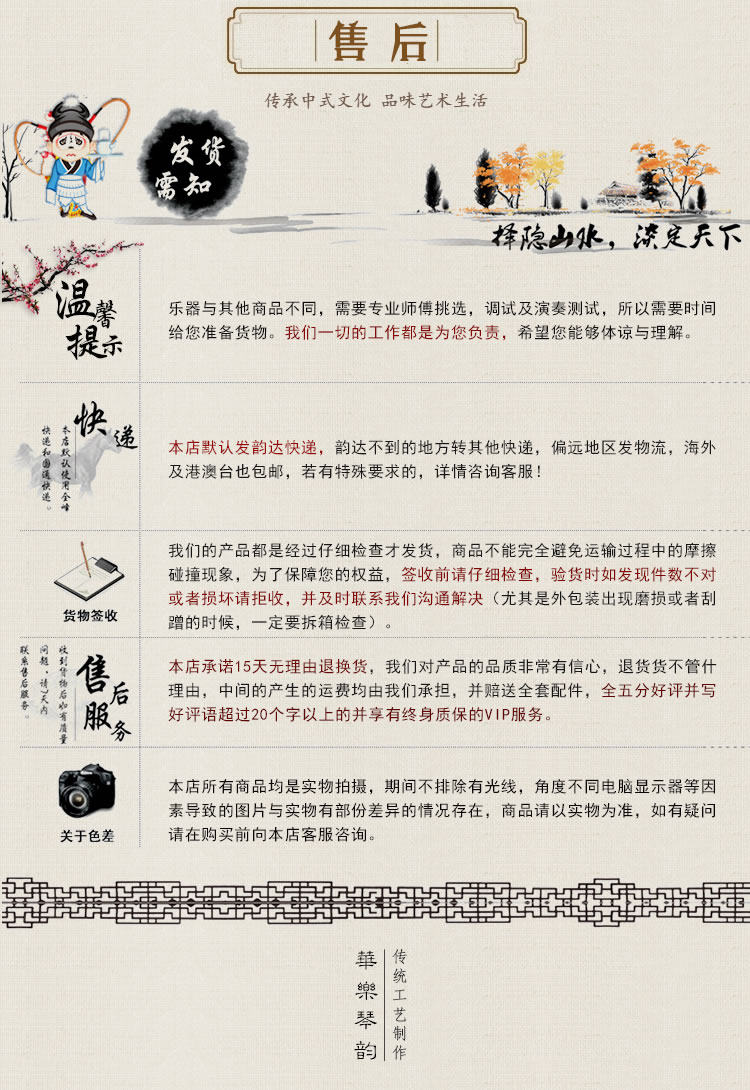 售后
传承中式文化 品味艺术生活
发货
需知
择隐山水，淡定天下
温馨
提示
乐器与其他商品不同，需要专业师傅挑选，调试及演奏测试，所以需要时间
给您准备货物。我们一切的工作都是为您负责，希望您能够体谅与理解。
快递
本店默认使用全峰
快递和圆通快递。
本店默认发韵达快递，韵达不到的地方转其他快递，偏远地区发物流，海外
及港澳台也包邮，若有特殊要求的，详情咨询客服！
货物签收
我们的产品都是经过仔细检查才发货，商品不能完全避免运输过程中的摩擦
碰撞现象，为了保障您的权益，签收前请仔细检查，验货时如发现件数不对
或者损坏请拒收，并及时联系我们沟通解决（尤其是外包装出现磨损或者刮
蹭的时候，一定要拆箱检查）。
售后
服务
收到货物后如有质量
问题，请7天内
联系售后服务。
本店承诺15天无理由退换货，我们对产品的品质非常有信心，退货货不管什
理由，中间的产生的运费均由我们承担，并赔送全套配件，全五分好评并写
好评语超过20个字以上的并享有终身质保的VIP服务。
关于色差
本店所有商品均是实物拍摄，期间不排除有光线，角度不同电脑显示器等因
素导致的图片与实物有部份差异的情况存在，商品请以实物为准，如有疑问
请在购买前向本店客服咨询。
传统工艺制作
華樂琴韵